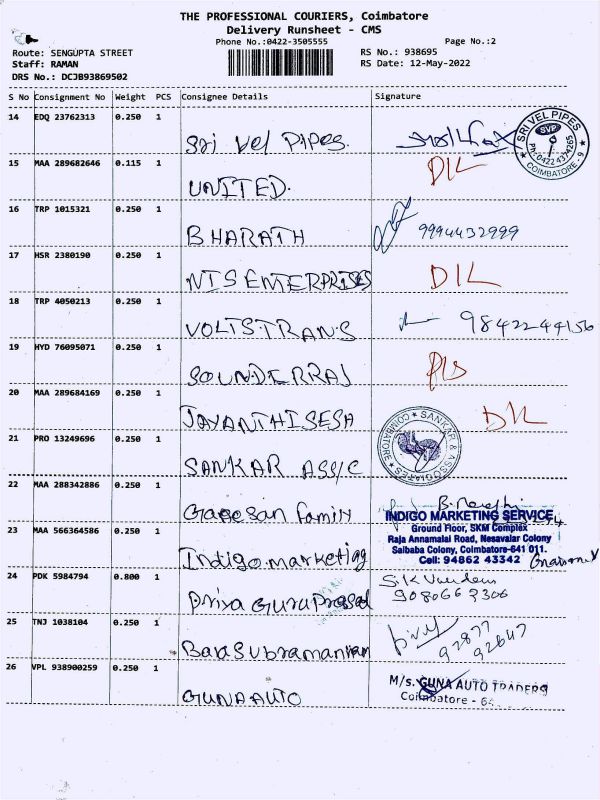 THE PROFESSIONAL COURIERS, Coimbatore
Delivery Runsheet - CMS
Phone No.:0422-3505555
Page No.:2
Route: SENGUPTA STREET
RS No.: 938695
Staff: RAMAN
RS Date: 12-May-2022
DRS No.: DCJB93869502
S No Consignment No Weight PCS Consignee Details Signature
14 EDQ 23762313 0.250 1
Sri Vel Pipes.
SRI VEL PIPES
SVP
Ph:0422 4374265
COIMBATORE - 9
15 MAA 289682646 0.115 1
UNITED. D/L
16 TRP 1015321 0.250 1
BHARATH 9994432999
17 HSR 2380190 0.250 1
NTS ENTERPRISES D/L
18 TRP 4050213 0.250 1
VOLTSTRANS 9842244156
19 HYD 76095071 0.250 1
SOUNDERRAJ
20 MAA 289684169 0.250 1
JAYANTHISESA D/L
21 PRO 13249696 0.250 1
SANKAR ASS/C
SANKAR & ASSOCIATES
COIMBATORE
22 MAA 288342886 0.250 1
Ganesan Family
23 MAA 566364586 0.250 1
Indigo marketing
INDIGO MARKETING SERVICE
Ground Floor, SKM Complex
Raja Annamalai Road, Nesavalar Colony
Saibaba Colony, Coimbatore-641 011.
Cell: 94862 43342
24 PDK 5984794 0.800 1
Priya Guru Prasad
9080663306
25 TNJ 1038104 0.250 1
Bala Subramaniyan
92877
92647
26 VPL 938900259 0.250 1
GUNA AUTO
M/s. GUNA AUTO TRADERS
Coimbatore - 64